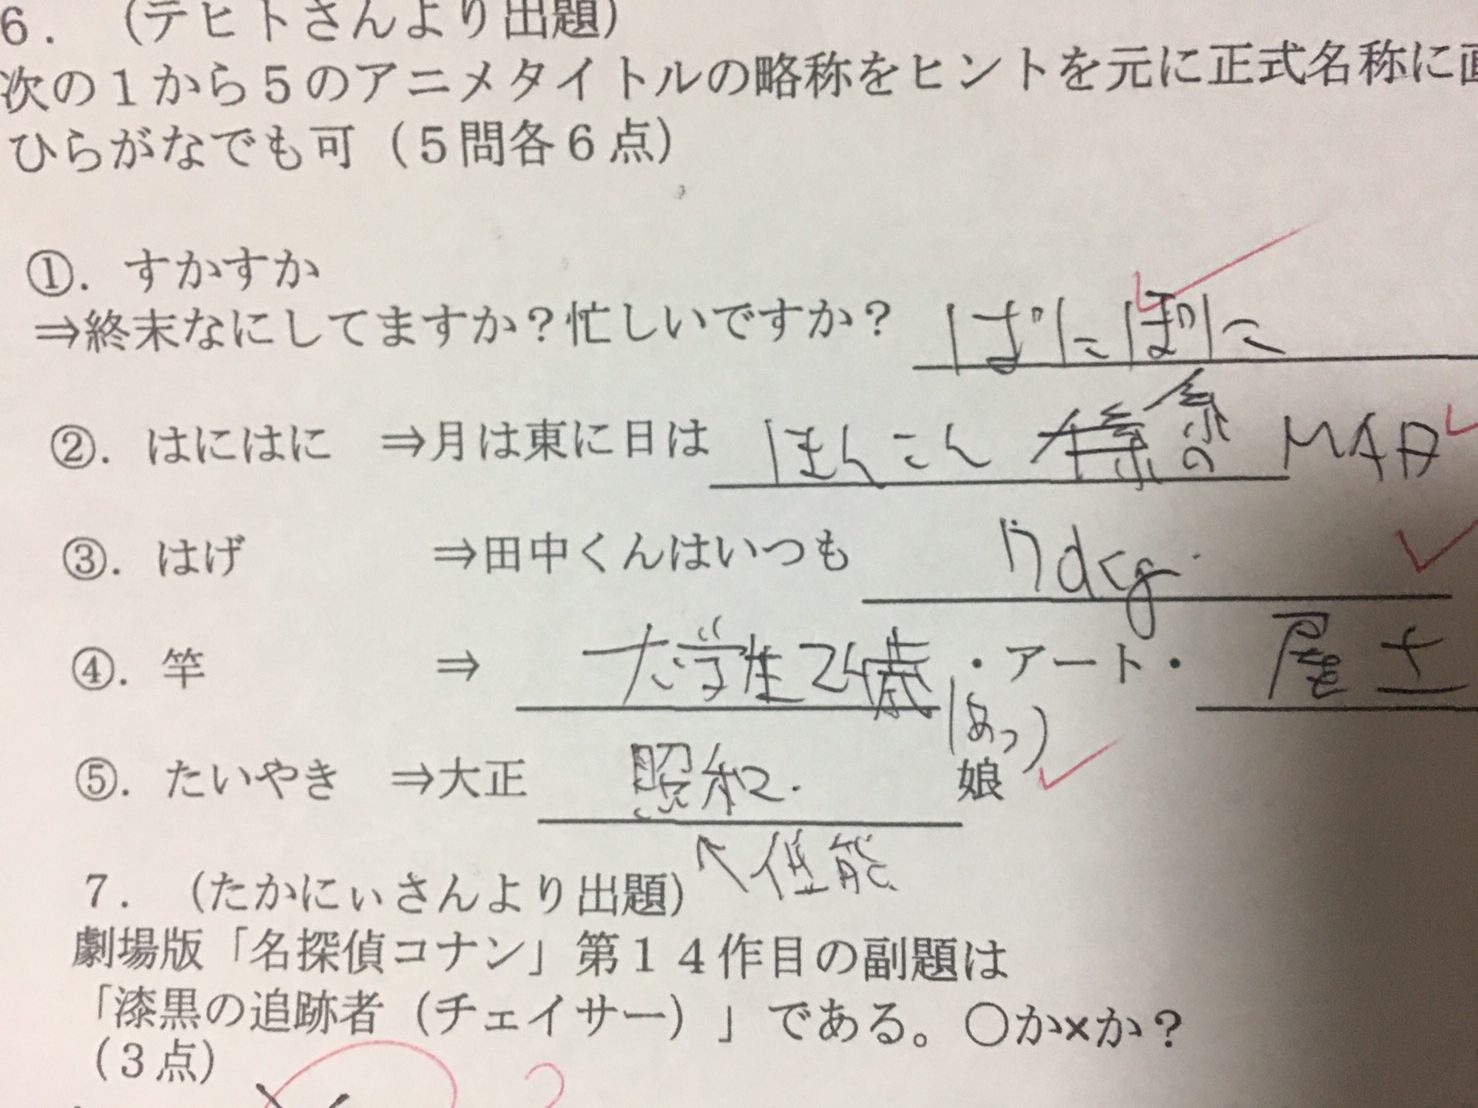 6. (テヒトさんより出題)
次の1から5のアニメタイトルの略称をヒントを元に正式名称に
ひらがなでも可(5問各6点)
①. すかすか
⇒終末なにしてますか?忙しいですか? ぱにぽに
②. はにはに ⇒月は東に日は ほんこん の MAD
③. はげ ⇒田中くんはいつも
④. 竿 ⇒ 大学生24歳 ・アート・ 尾士
⑤. たいやき ⇒大正 照和. (あっ) 娘
↖低能
7. (たかにぃさんより出題)
劇場版「名探偵コナン」第14作目の副題は
「漆黒の追跡者(チェイサー)」である。○か×か?
(3点)